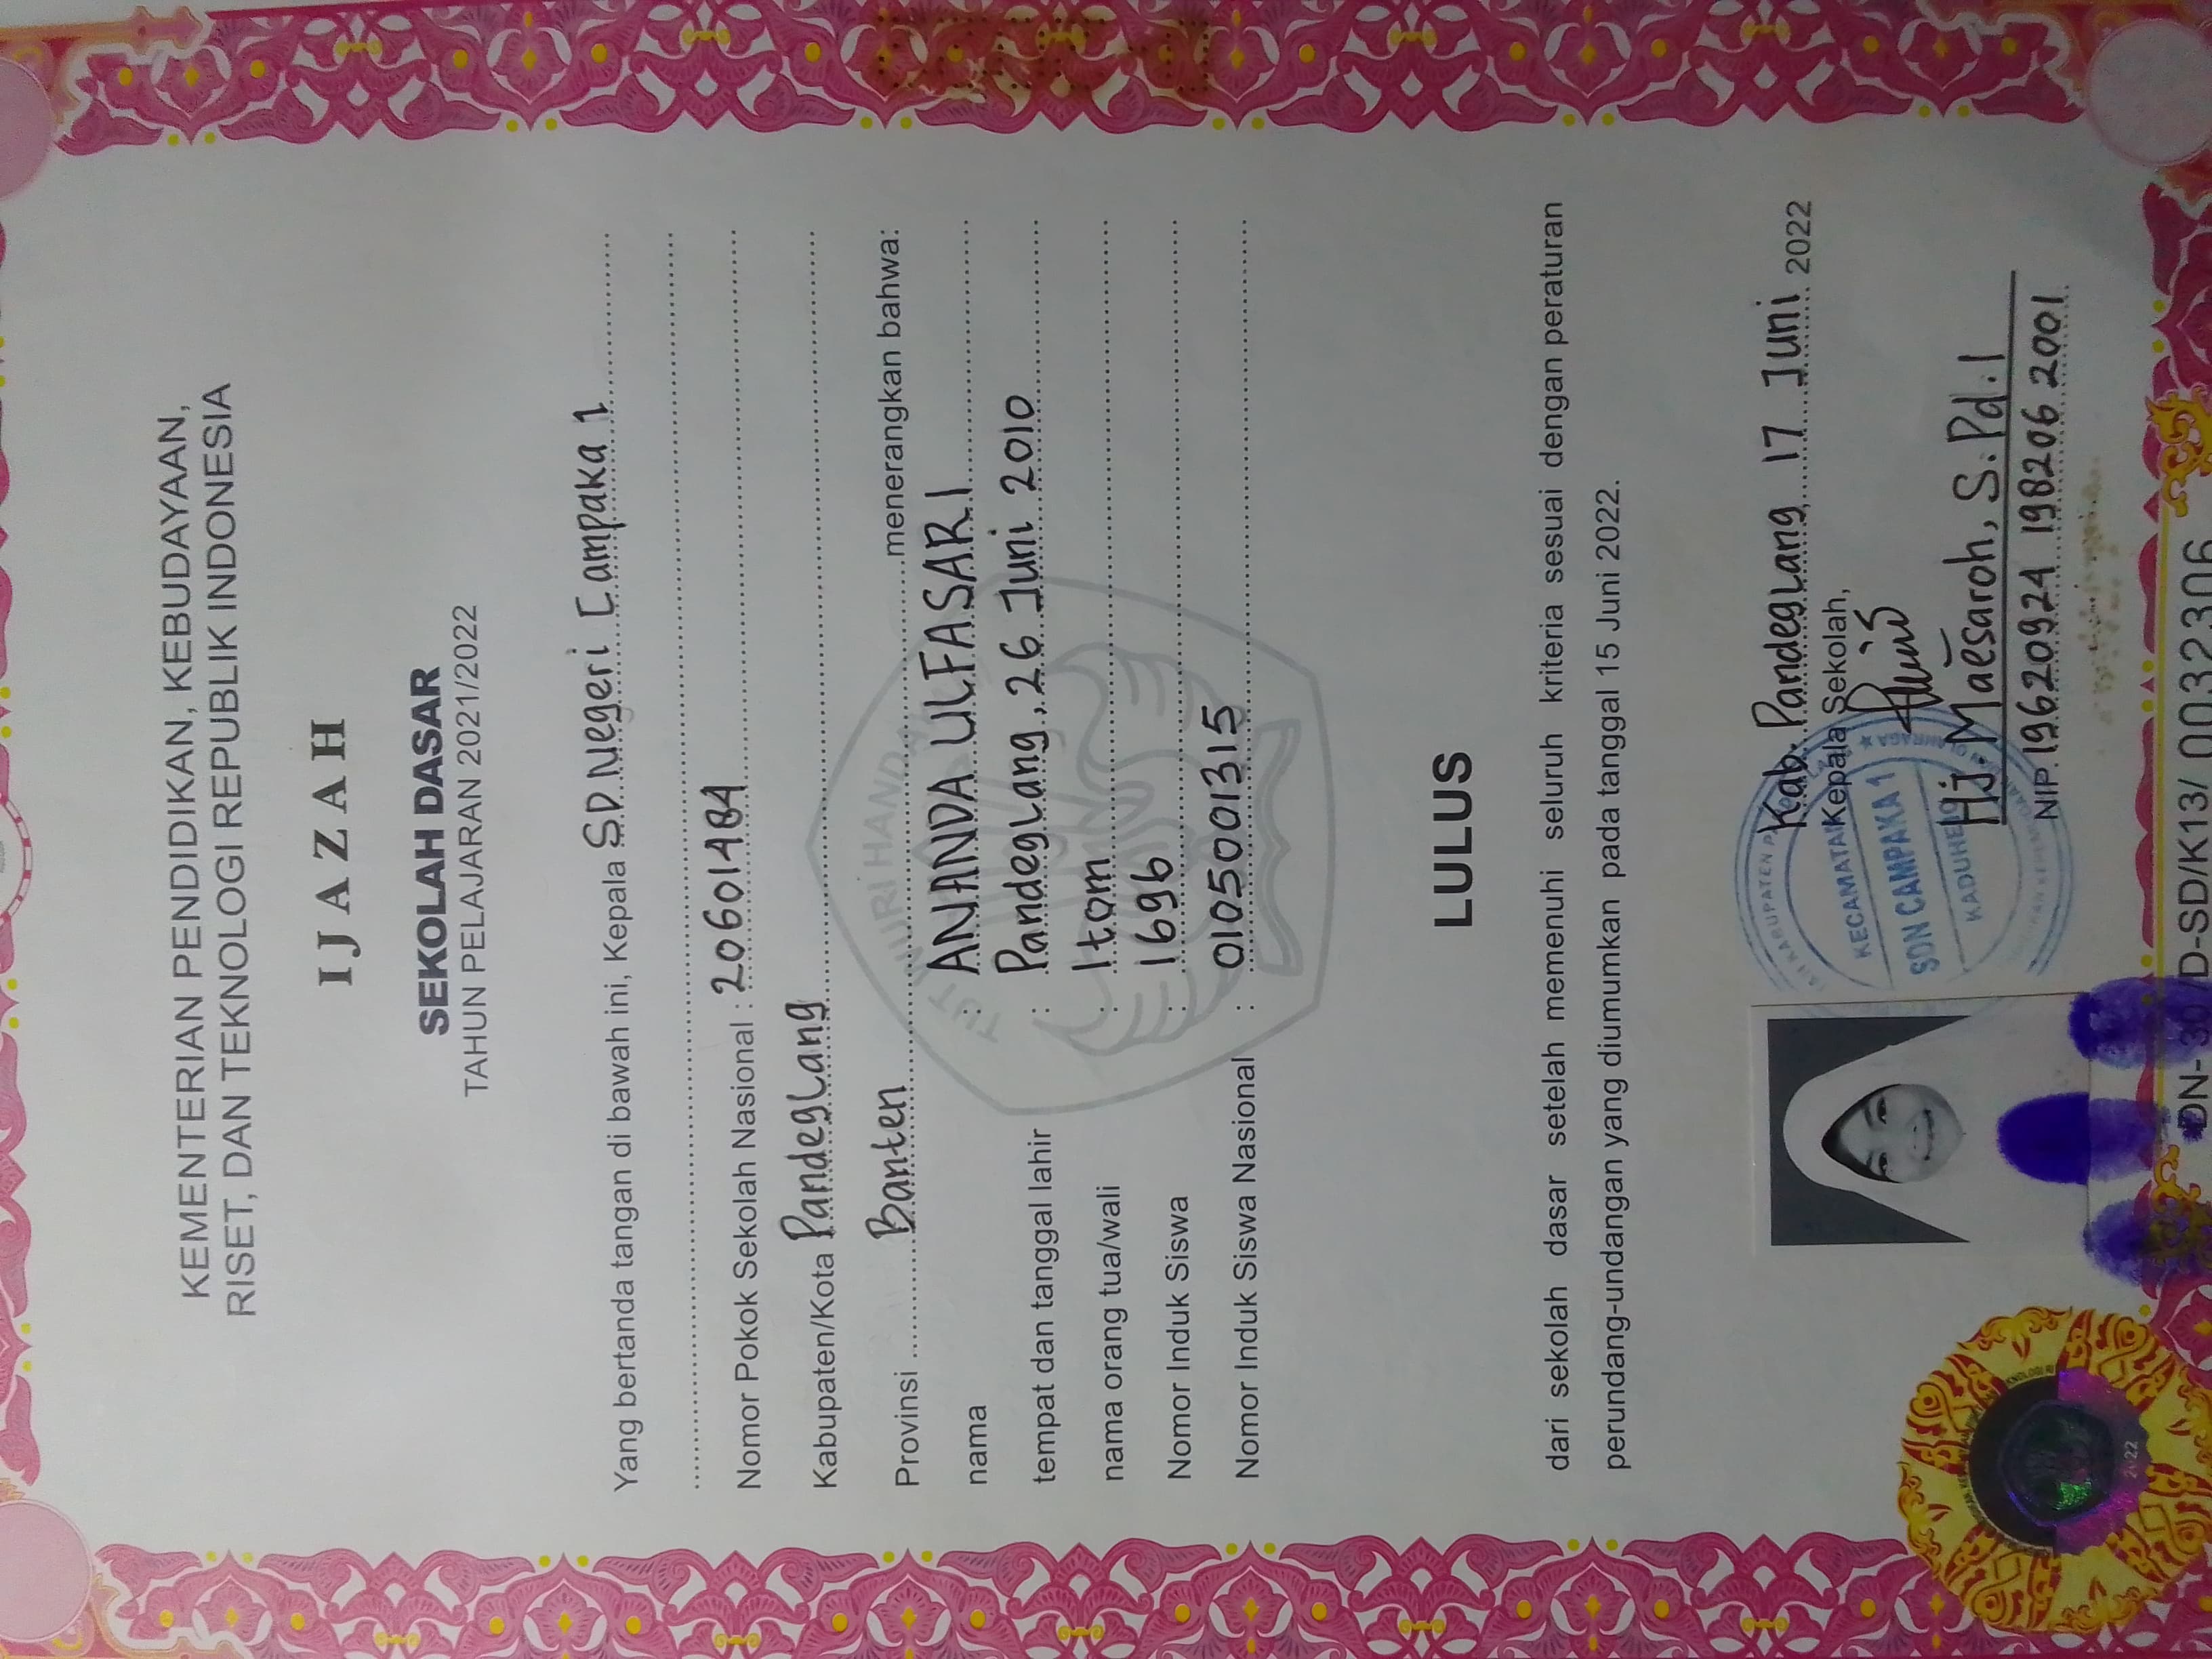 KEMENTERIAN PENDIDIKAN, KEBUDAYAAN,
RISET, DAN TEKNOLOGI REPUBLIK INDONESIA
IJAZAH
SEKOLAH DASAR
TAHUN PELAJARAN 2021/2022
Yang bertanda tangan di bawah ini, Kepala SD Negeri Campaka 1
Nomor Pokok Sekolah Nasional : 20601484
Kabupaten/Kota Pandeglang
Provinsi Banten menerangkan bahwa:
nama : ANANDA ULFASARI
tempat dan tanggal lahir : Pandeglang, 26 Juni 2010
nama orang tua/wali : Itom
Nomor Induk Siswa : 1696
Nomor Induk Siswa Nasional : 0105001315
LULUS
dari sekolah dasar setelah memenuhi seluruh kriteria sesuai dengan peraturan
perundang-undangan yang diumumkan pada tanggal 15 Juni 2022.
Kab. Pandeglang 17 Juni 2022
Kepala Sekolah,
KECAMATAN
SDN CAMPAKA 1
KADUHEJO
Hj. Maesaroh, S.Pd.I
NIP. 19620924 198206 2001
DN-30/D-SD/K13/0032306
2022